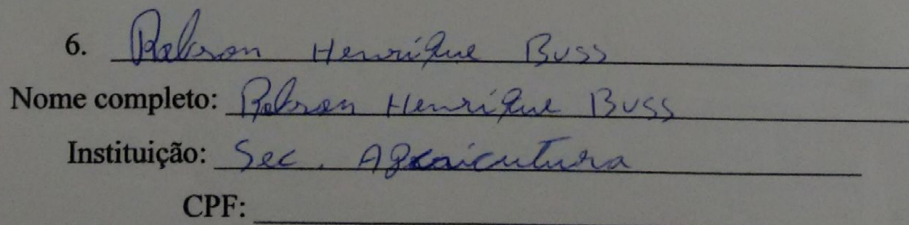 6. Robson Henrique Buss
Nome completo: Robson Henrique Buss
Instituição: Sec. Agraicutura
CPF: